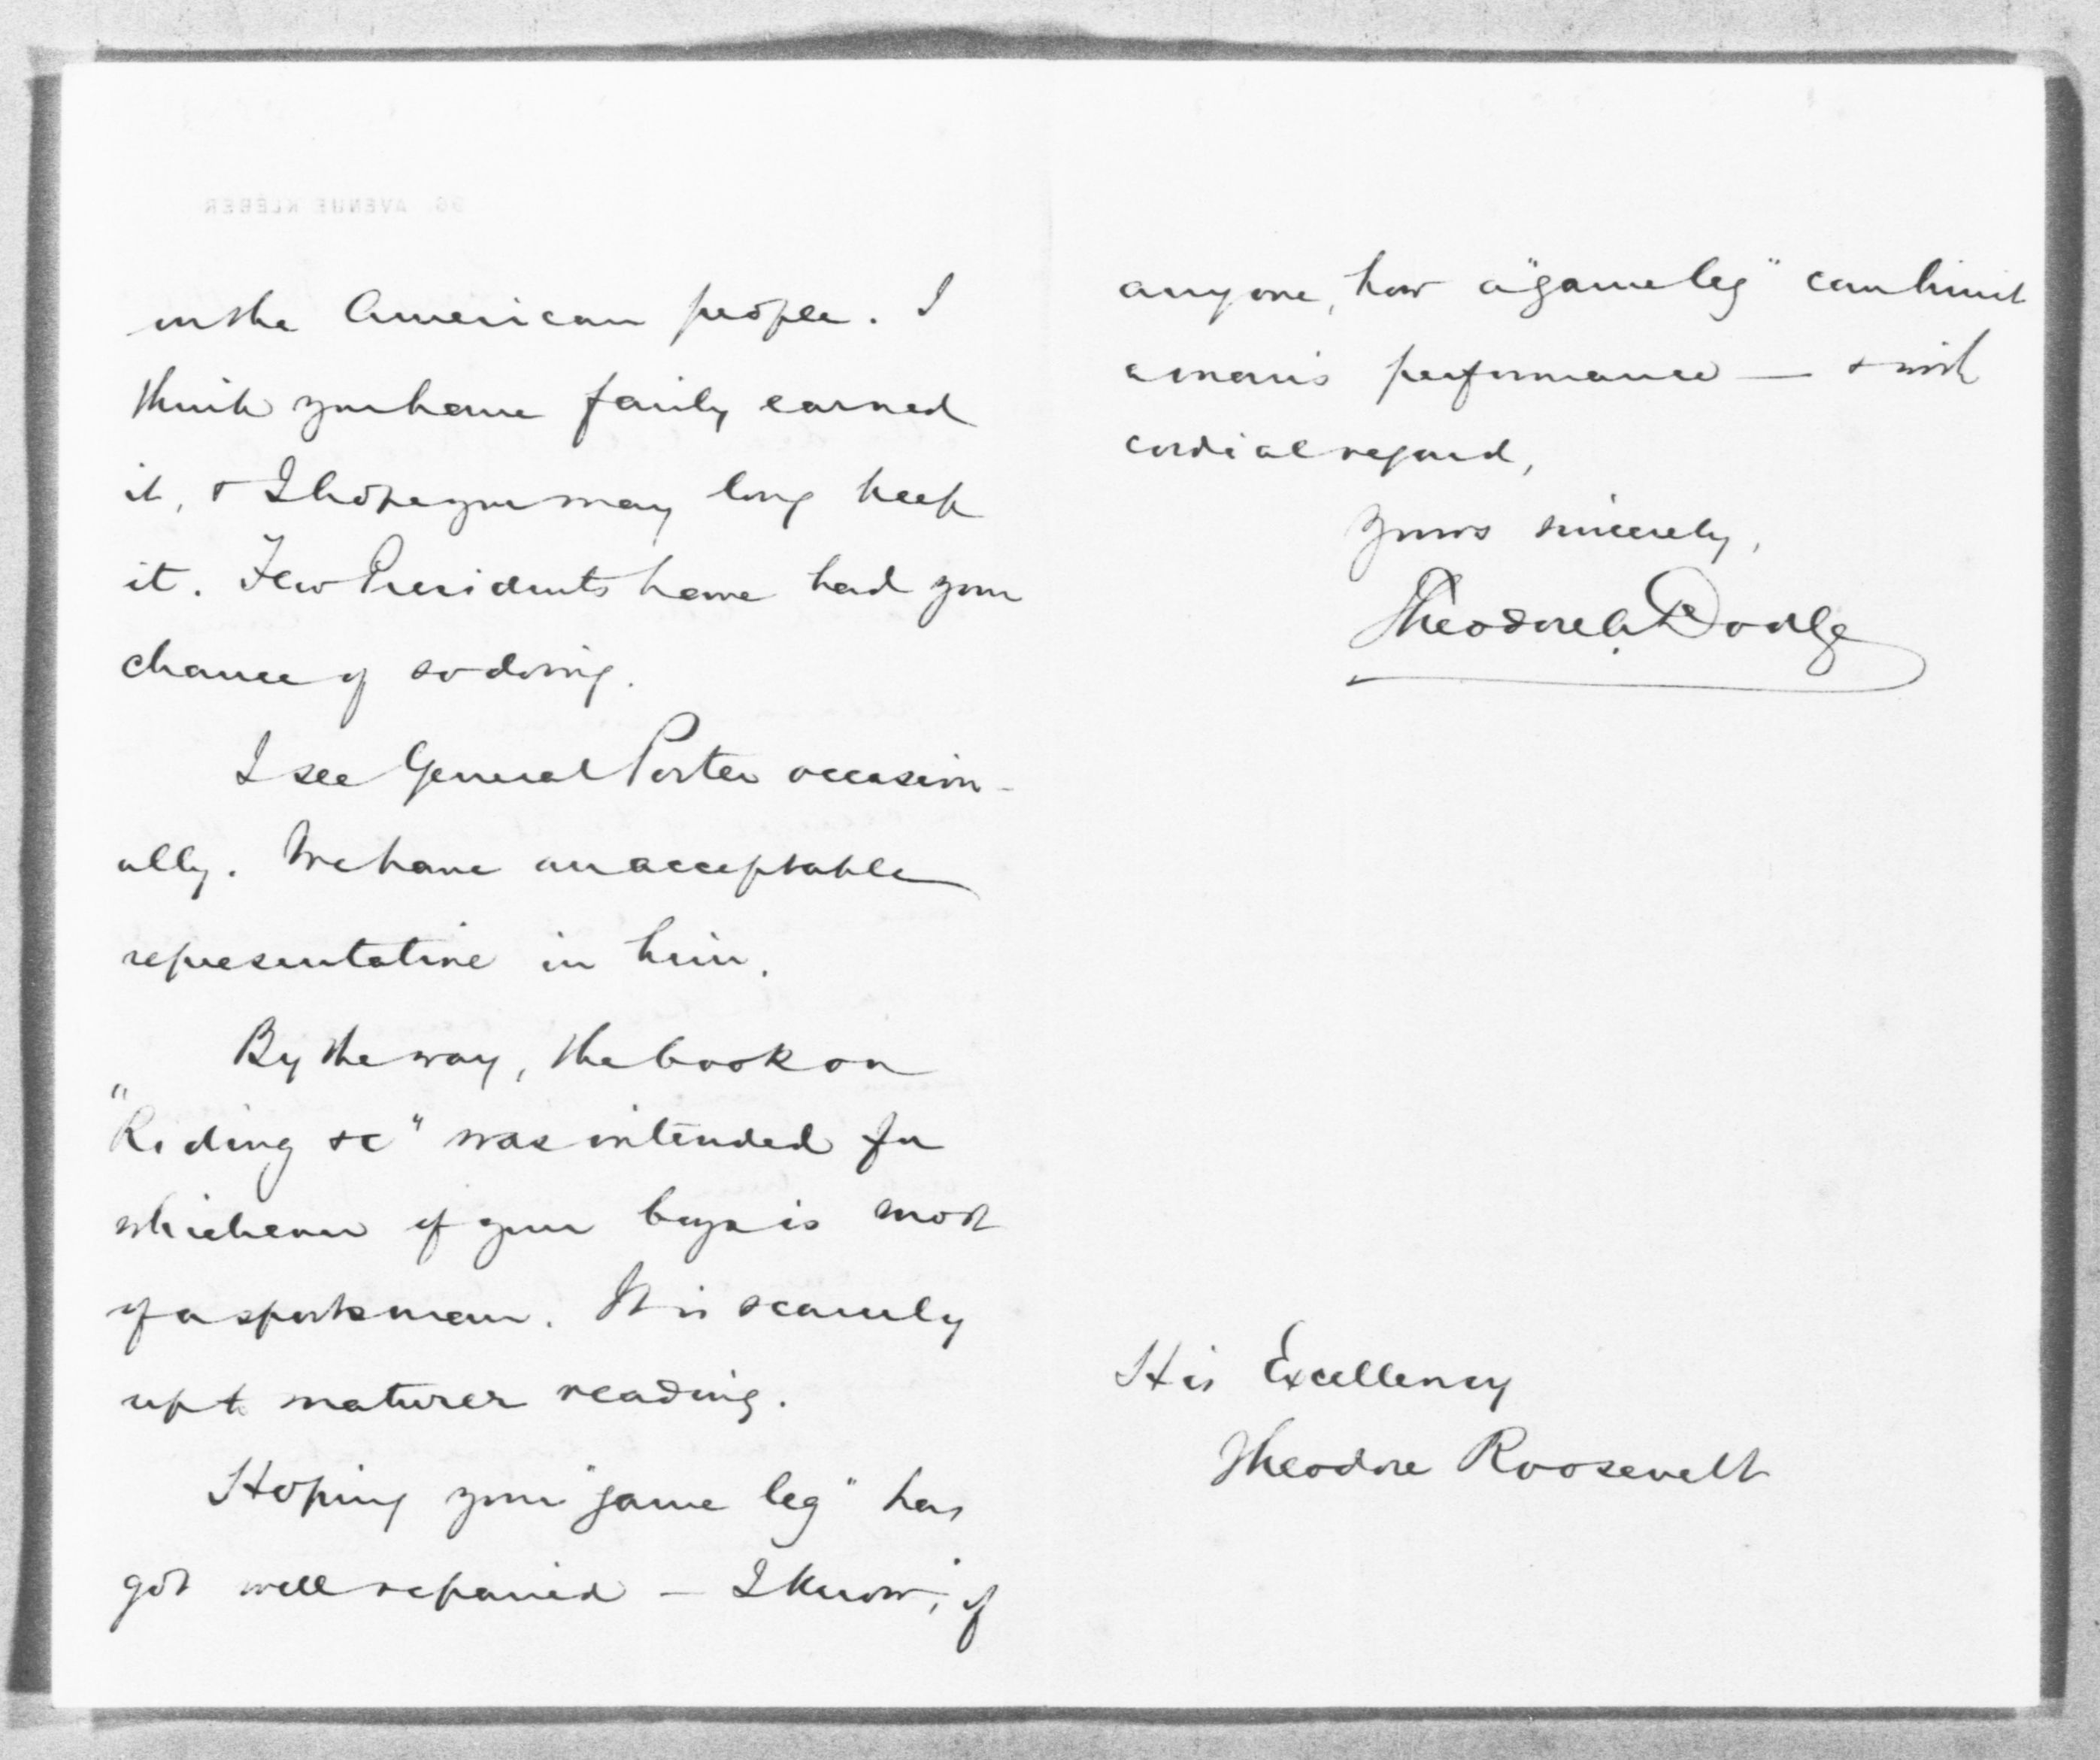 on the American people. I
think you have fairly earned
it, & I hope you may long keep
it. Few Presidents have had your
chance of so doing.
I see General Porter occasion-
ally. We have an acceptable
representative in him.
By the way, the book on
"Riding &c" was intended for
whichever of your boys is most
of a sportsman. It is scarcely
up to maturer reading.
Hoping your "game leg" has
got well repaired — I know, if
anyone, how a "game leg" can limit
a man's performance — & with
cordial regard,
Yours sincerely,
Theodore A. Dodge
His Excellency
Theodore Roosevelt